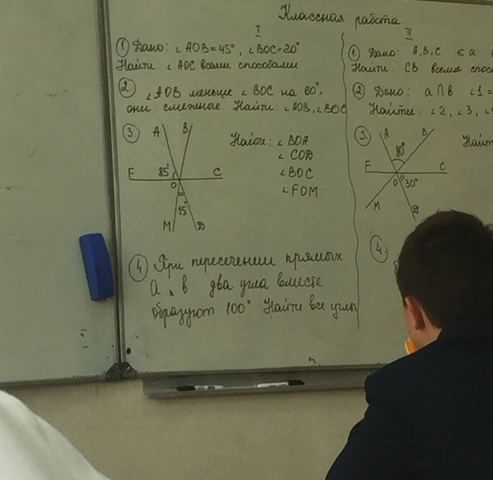 Классная работа
I
① Дано: ∠AOB=45°, ∠BOC=20°
Найти ∠AOC всеми способами
② ∠AOB меньше ∠BOC на 60°,
они смежные. Найти: ∠AOB, ∠BOC
3.
A B
85°
F O C
15°
M D
Найти: ∠BOA
∠COD
∠BOC
∠FOM
④ При пересечении прямых
a и b два угла вместе
образуют 100° Найти все углы
II
① Дано: A, B, C ∈ a
Найти: CB всеми
② Дано: a∩b ∠1=
Найти: ∠2, ∠3,
3.
A B
80°
F C
O 30°
M D
4